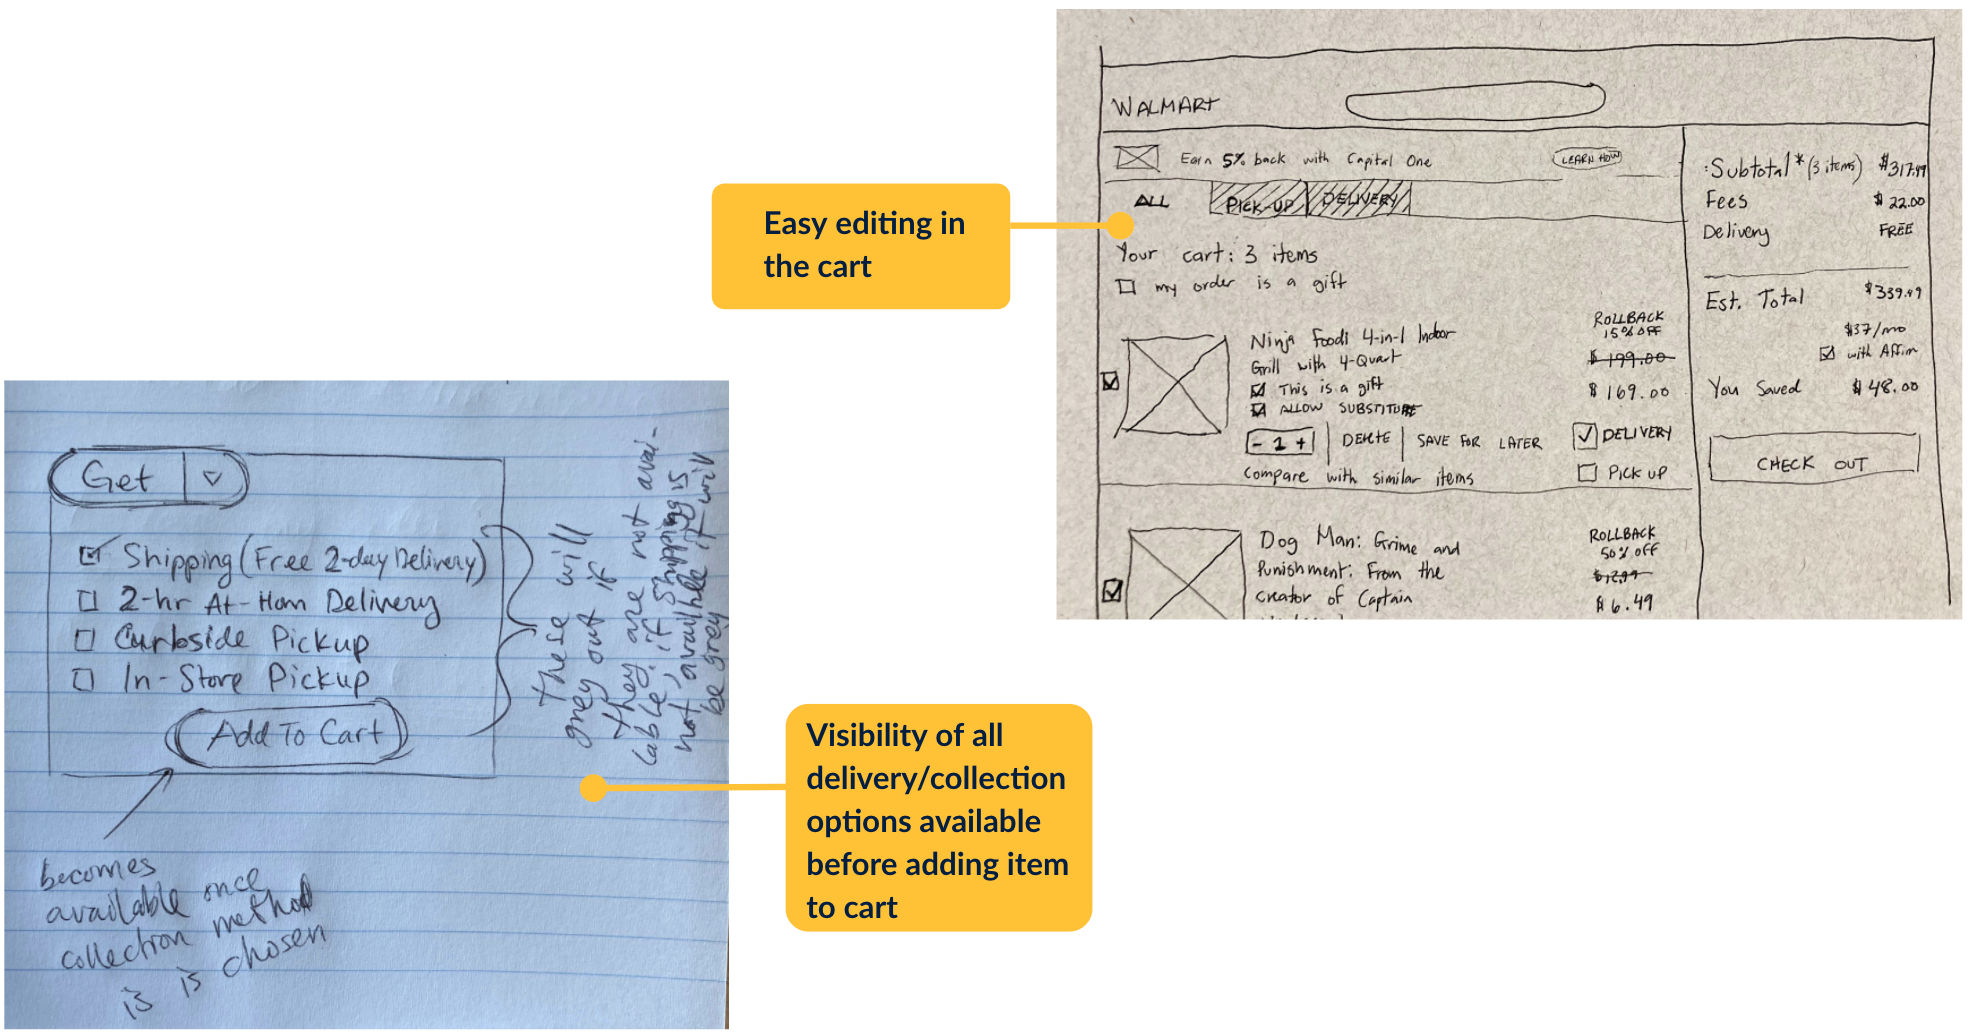 WALMART
Earn 5% back with Capital One
LEARN HOW
ALL
PICK-UP
DELIVERY
Your cart: 3 items
my order is a gift
Ninja Foodi 4-in-1 Indoor
Grill with 4-Quart
This is a gift
ALLOW SUBSTITUTE
- 1 +
DELETE
SAVE FOR LATER
Compare with similar items
ROLLBACK
15% OFF
$ 199.00
$ 169.00
DELIVERY
PICK UP
Dog Man: Grime and
Punishment: From the
creator of Captain
ROLLBACK
50% OFF
$12.99
$6.49
Subtotal* (3 items) $317.49
Fees $22.00
Delivery FREE
Est. Total $339.49
$37/mo
with Affirm
You Saved $48.00
CHECK OUT
Easy editing in
the cart
Get
Shipping (Free 2-day Delivery)
2-hr At-Hom Delivery
Curbside Pickup
In-Store Pickup
Add To Cart
These will
grey out if
they are not avai-
lable, if shipping is
not available it will
be grey
becomes
available once
collection method
is is chosen
Visibility of all
delivery/collection
options available
before adding item
to cart